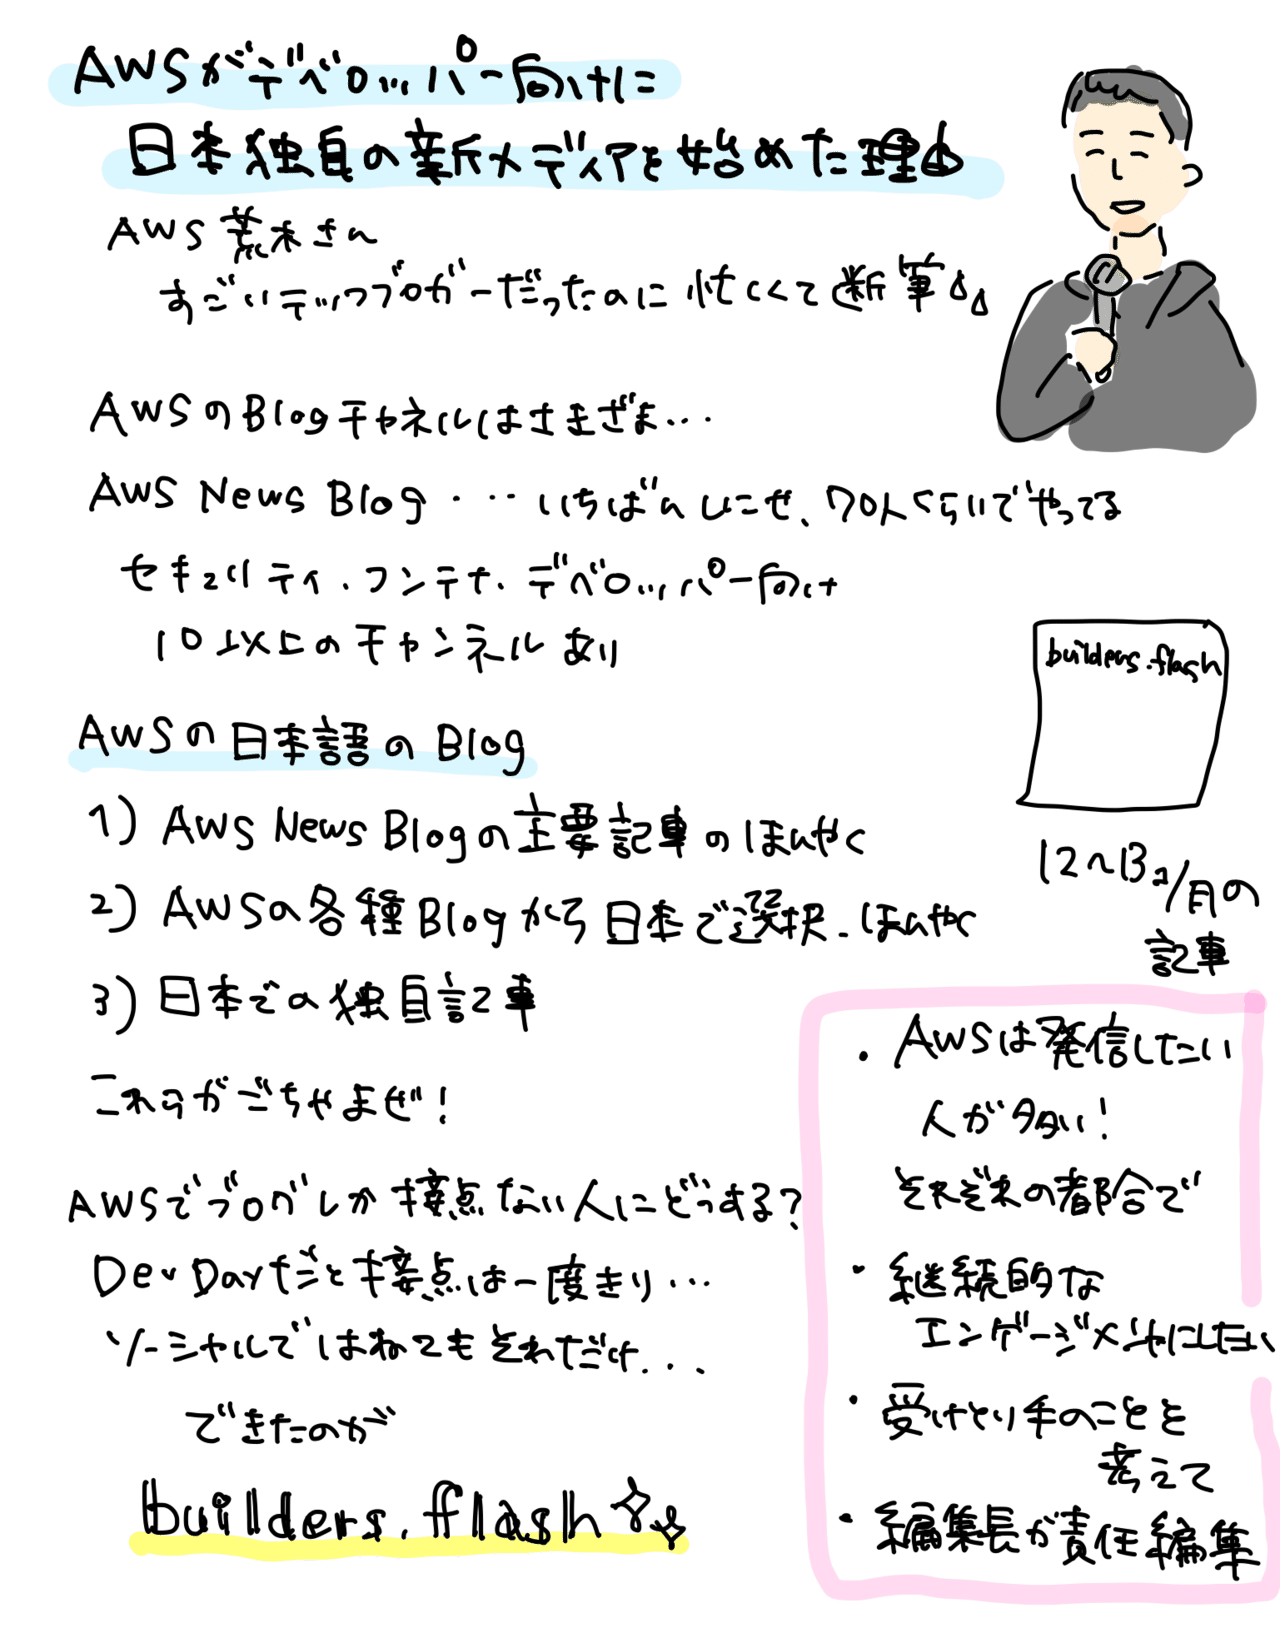 AWSがデベロッパー向けに
日本独自の新メディアを始めた理由
AWS 荒木さん
すごいテックブロガーだったのに 忙しくて断筆
AWSのBlogチャネルはさまざま...
AWS News Blog ... いちばんしにせ、70人くらいでやってる
セキュリティ、コンテナ、デベロッパー向け
10以上のチャンネルあり
builders.flash
12〜13コ/月の
記事
AWSの日本語のBlog
1) AWS News Blogの主要記事のほんやく
2) AWSの各種Blogから日本で選択、ほんやく
3) 日本での独自記事
これらがごちゃまぜ!
AWSでブログしか接点ない人にどうする?
Dev Dayだと接点は一度きり...
ソーシャルではねてもそれだけ...
できたのが
builders.flash
・AWSは発信したい
人が多い!
それぞれの都合で
・継続的な
エンゲージメントにしたい
・受けとり手のことを
考えて
・編集長が責任編集